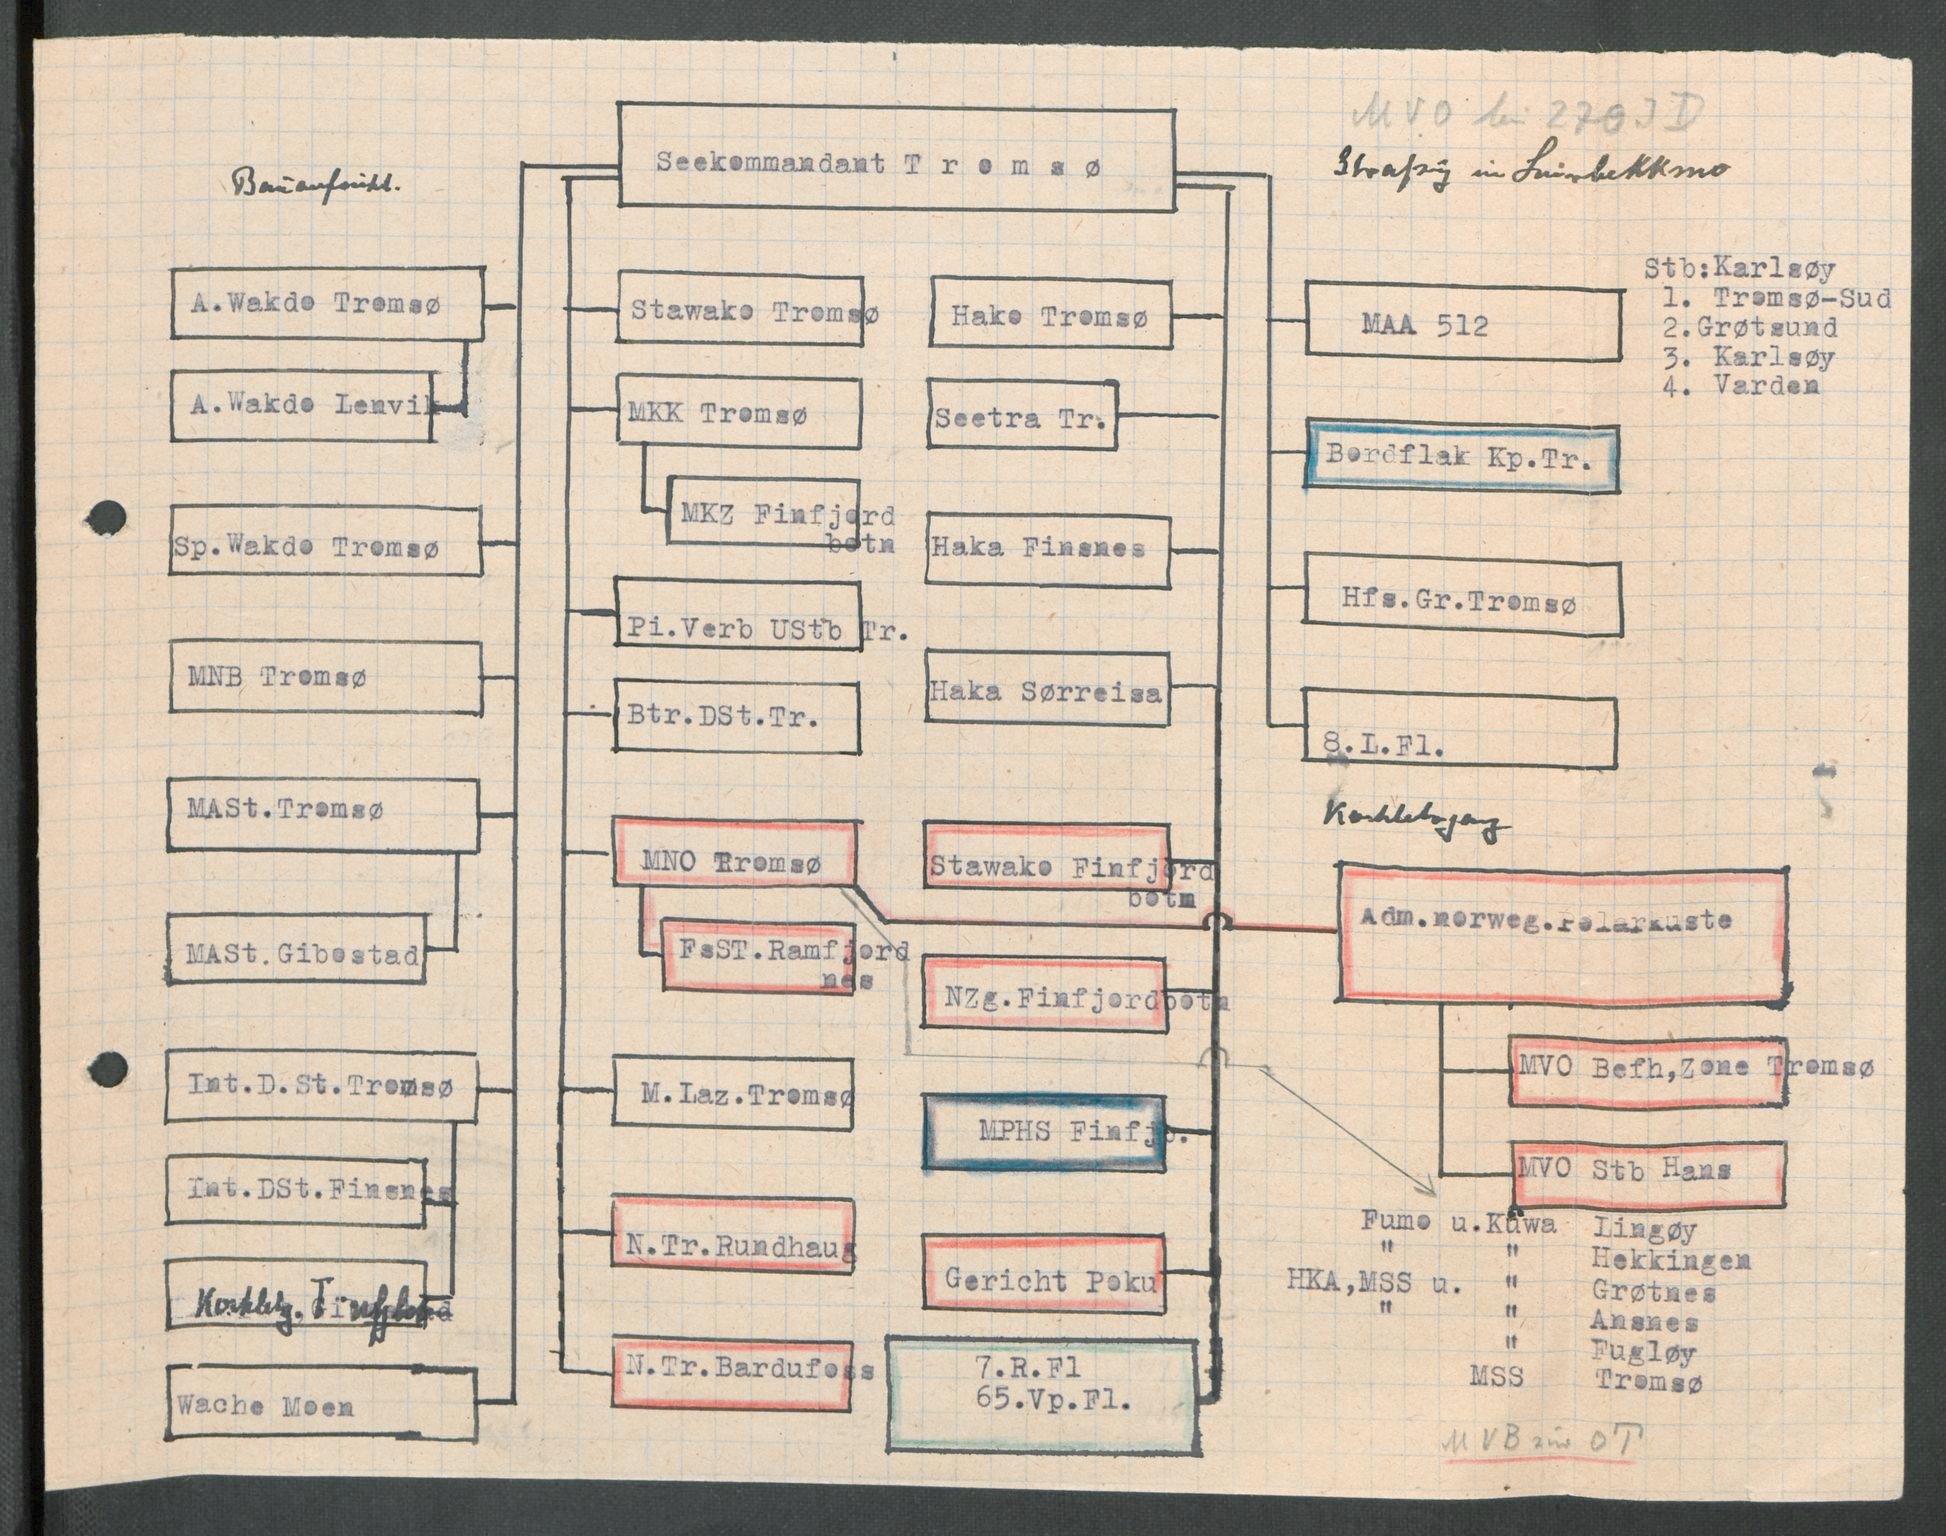 MVO bei 270 ID
Seekommandant T r o m s ø
in
Bauaufsicht.
A.Wakdo Tromsø
A.Wakdo Lenvik
Sp.Wakdo Tromsø
MNB Tromsø
MASt.Tromsø
MASt.Gibostad
Int.D.St.Tromsø
Int.DSt.Finsnes
Wache Moen
Stawako Tromsø
MKK Tromsø
MKZ Finfjord
botn
Pi.Verb UStb Tr.
Btr.DSt.Tr.
MNO Tromsø
FsST.Ramfjord
nes
M.Laz.Tromsø
N.Tr.Rundhaug
N.Tr.Bardufoss
Hako Tromsø
Seetra Tr.
Haka Finsnes
Haka Sørreisa
Stawako Finfjord
botn
NZg.Finfjordbotn
MPHS Finfjo.
Gericht Poku
7.R.Fl
65.Vp.Fl.
MAA 512
Stb:Karlsøy
1. Tromsø-Sud
2.Grøtsund
3. Karlsøy
4. Varden
Bordflak Kp.Tr.
Hfs.Gr.Tromsø
8.L.Fl.
Adm.norweg.Polarkuste
MVO Befh,Zone Tromsø
MVO Stb Hans
Fumo u.Küwa Lingøy
" " Hekkingen
HKA,MSS u. " Grøtnes
" " Ansnes
" Fugløy
MSS Tromsø
MVB zur OT